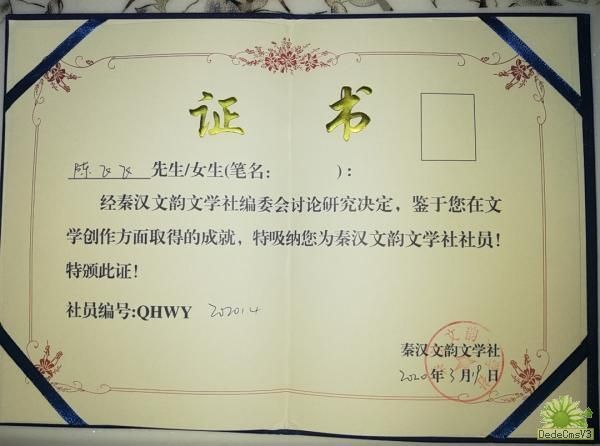 证书
陈飞飞 先生/女生(笔名:            ):
经秦汉文韵文学社编委会讨论研究决定，鉴于您在文
学创作方面取得的成就，特吸纳您为秦汉文韵文学社社员！
特颁此证！
社员编号:QHWY 202014
秦汉文韵文学社
2020年3月19日
DedeCmsV3